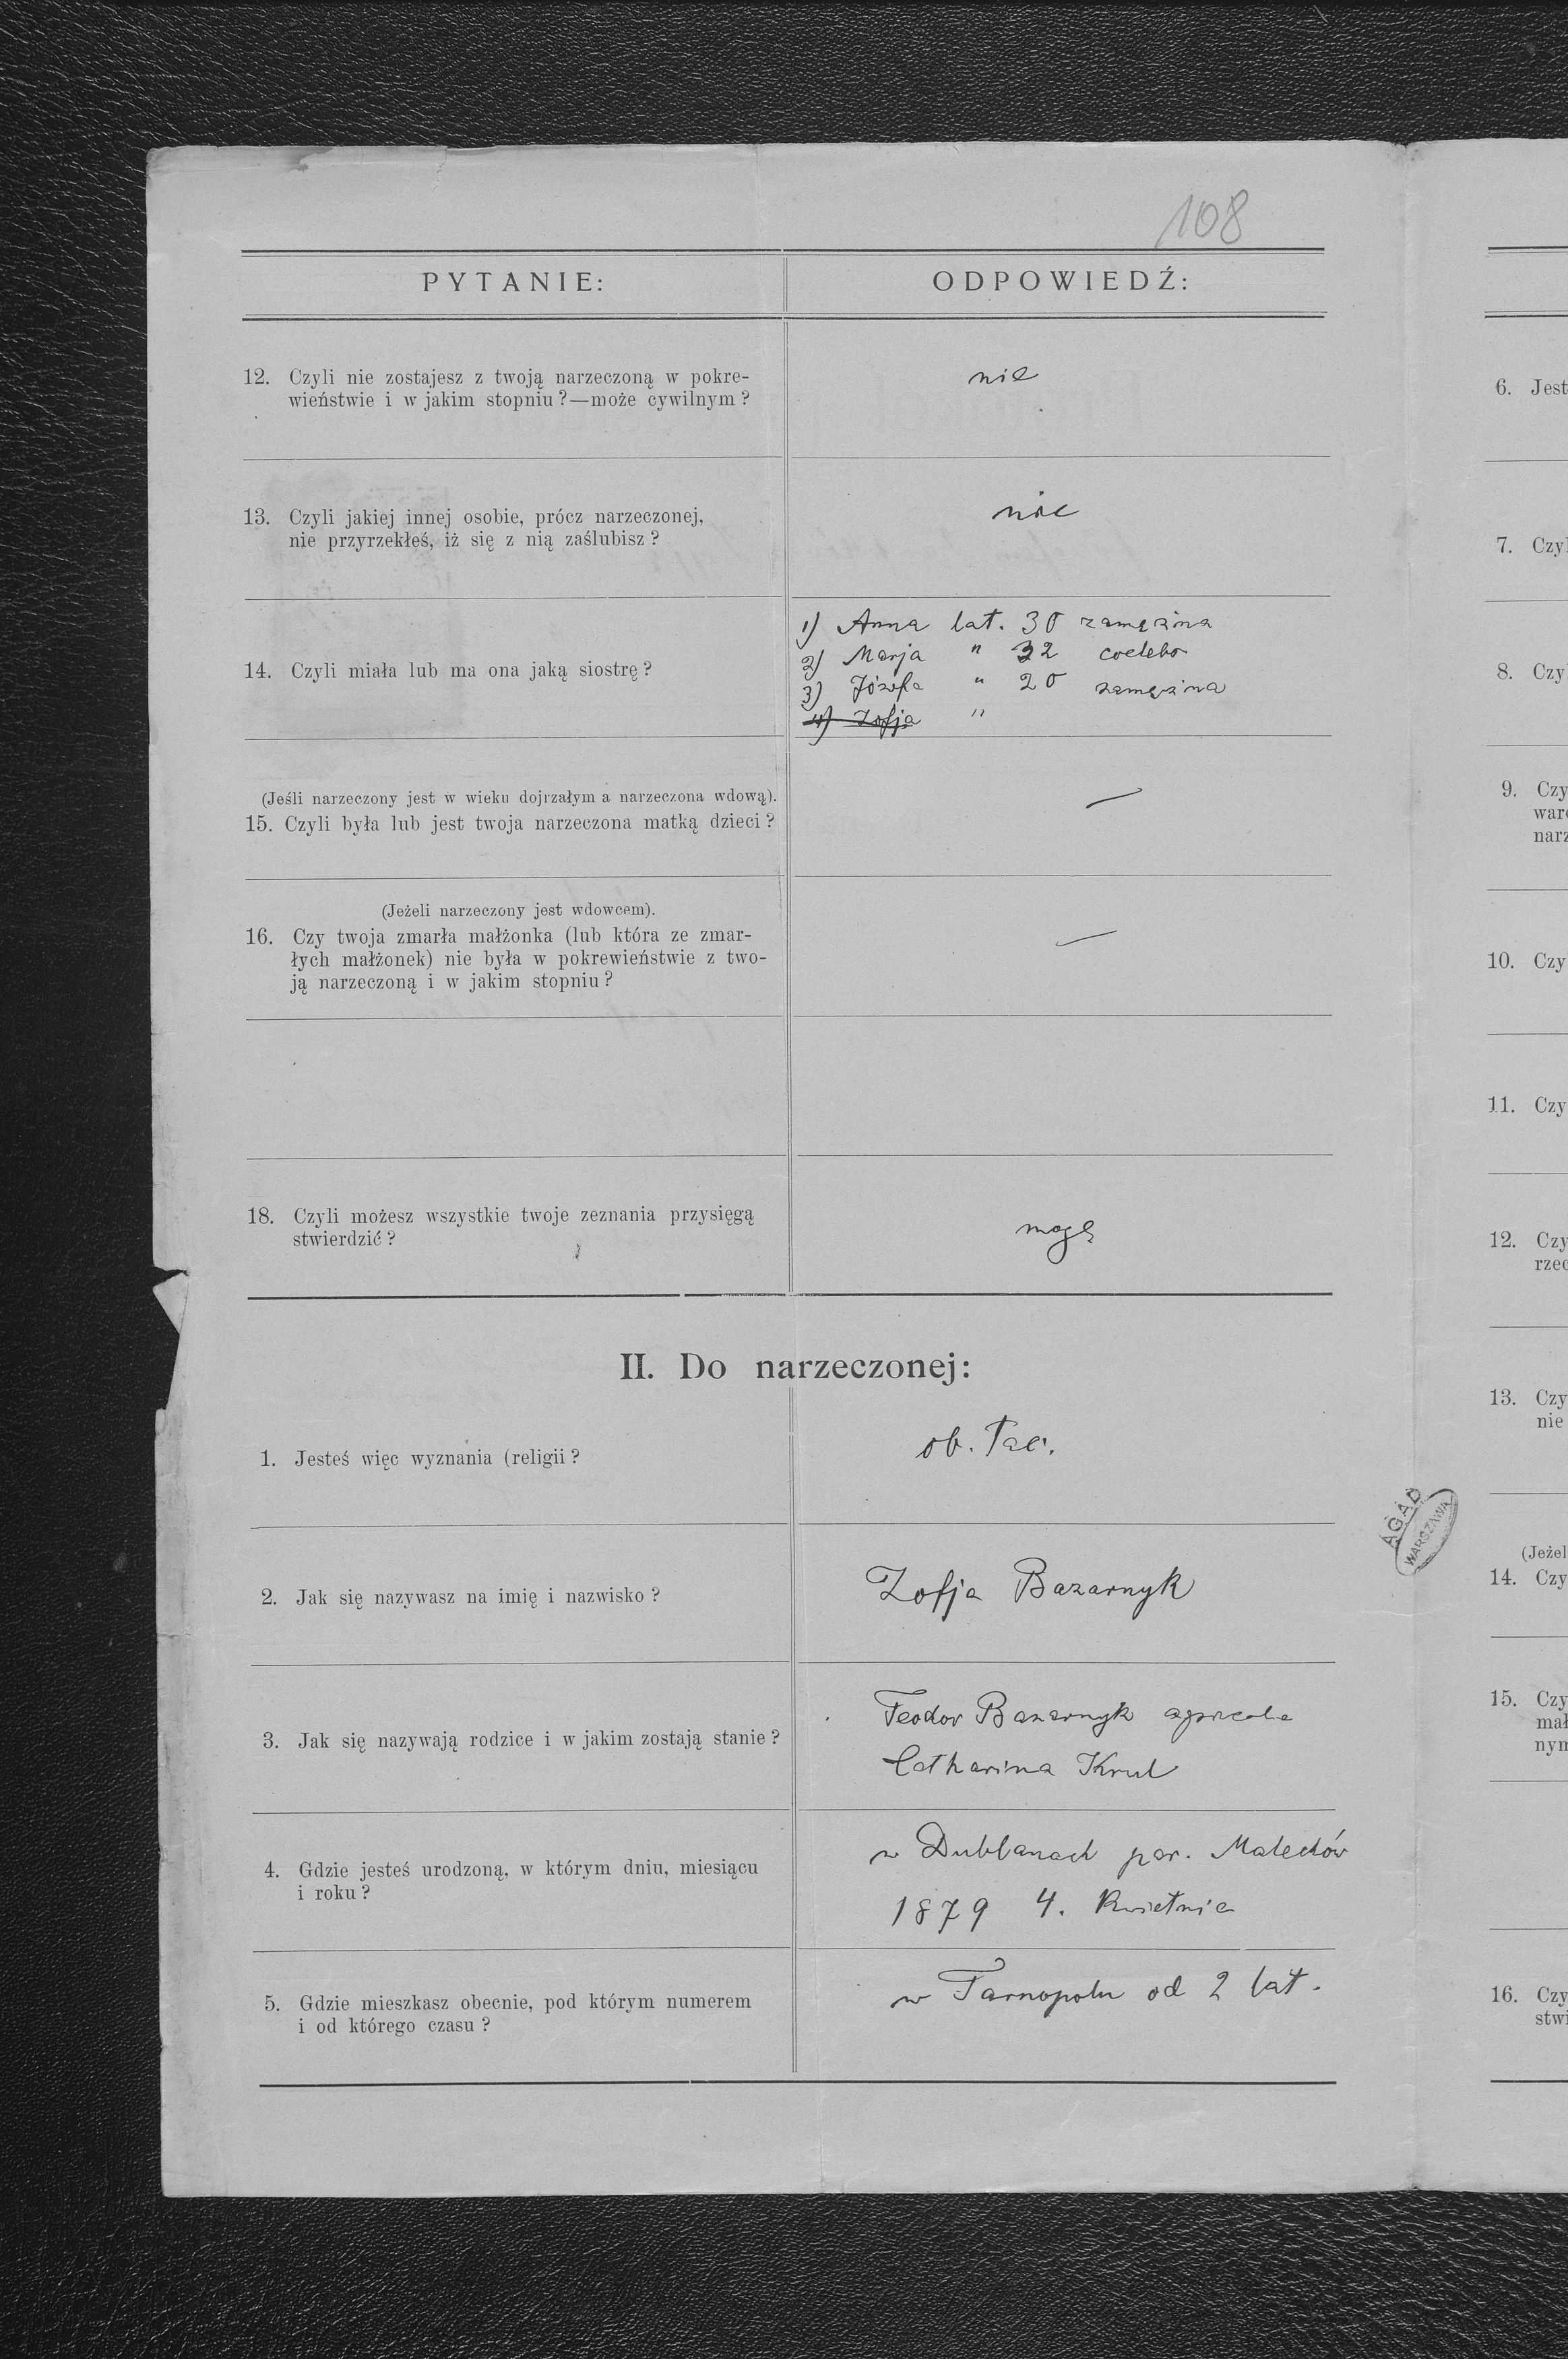 108
PYTANIE:
ODPOWIEDŹ:
12. Czyli nie zostajesz z twoją narzeczoną w pokre-
wieństwie i w jakim stopniu?—może cywilnym?
nie
13. Czyli jakiej innej osobie, prócz narzeczonej,
nie przyrzekłeś, iż się z nią zaślubisz?
nie
14. Czyli miała lub ma ona jaką siostrę?
1) Anna lat. 30 zamężna
2) Marja " 32 coelebs
3) Józefa " 20 zamężna
4) Zofja "
(Jeśli narzeczony jest w wieku dojrzałym a narzeczona wdową).
15. Czyli była lub jest twoja narzeczona matką dzieci?
—
(Jeżeli narzeczony jest wdowcem).
16. Czy twoja zmarła małżonka (lub która ze zmar-
łych małżonek) nie była w pokrewieństwie z two-
ją narzeczoną i w jakim stopniu?
—
18. Czyli możesz wszystkie twoje zeznania przysięgą
stwierdzić?
mogę
II. Do narzeczonej:
1. Jesteś więc wyznania (religii?
ob. łac.
2. Jak się nazywasz na imię i nazwisko?
Zofja Bazarnyk
3. Jak się nazywają rodzice i w jakim zostają stanie?
Teodor Bazarnyk agricola
Catharina Krul
4. Gdzie jesteś urodzoną, w którym dniu, miesiącu
i roku?
w Dublanach par. Malechów
1879 4. Kwietnia
5. Gdzie mieszkasz obecnie, pod którym numerem
i od którego czasu?
w Tarnopolu od 2 lat.
AGAD
WARSZAWA
6. Jest
7. Czyl
8. Czyl
9. Czy
war
narz
10. Czy
11. Czy
12. Czy
rzec
13. Czy
nie
(Jeżel
14. Czy
15. Czy
mał
nym
16. Czy
stwi